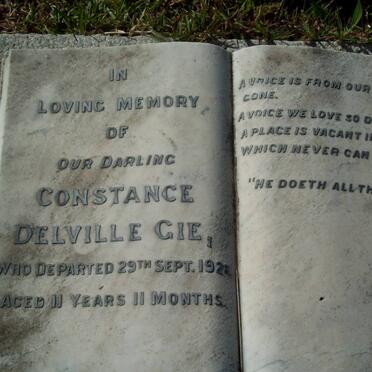 IN
LOVING MEMORY
OF
OUR DARLING
CONSTANCE
DELVILLE GIE,
WHO DEPARTED 29TH SEPT. 192
AGED 11 YEARS 11 MONTHS.
A VOICE IS FROM OUR
GONE.
A VOICE WE LOVE SO
A PLACE IS VACANT
WHICH NEVER CAN
"HE DOETH ALL TH